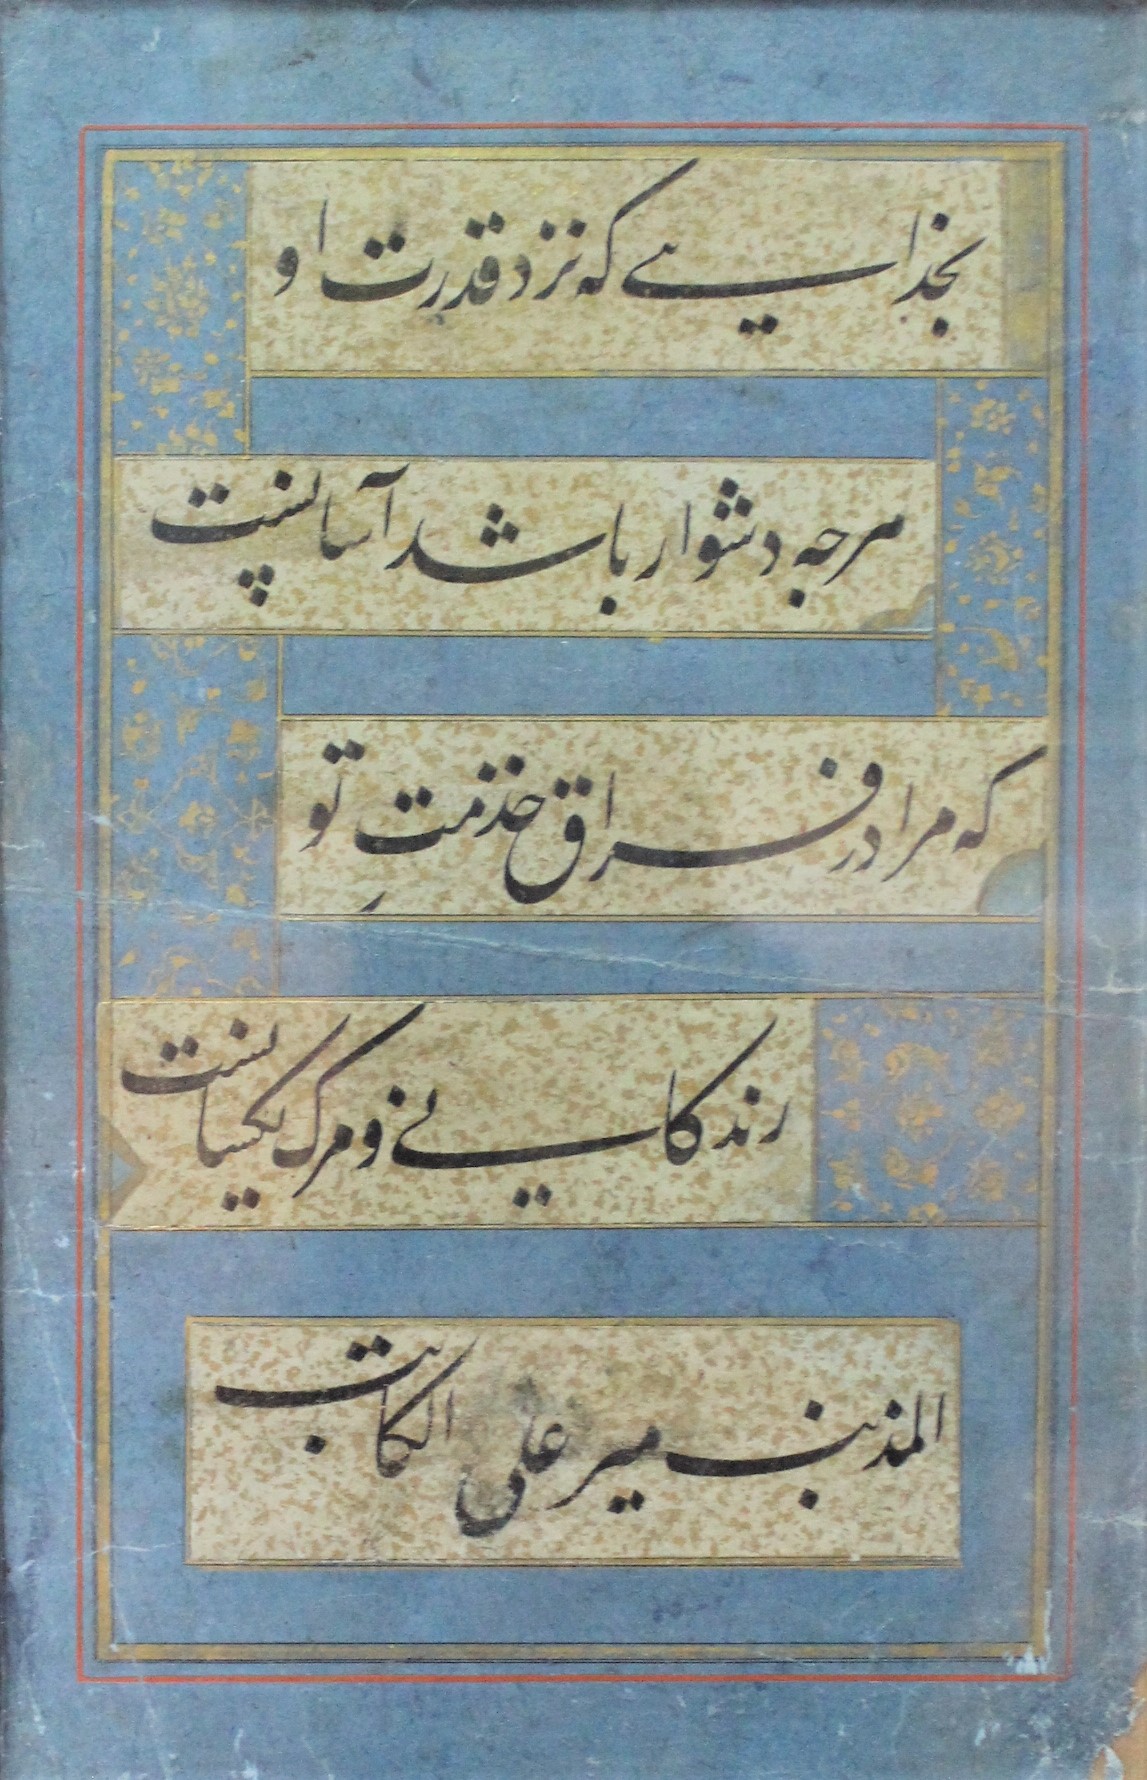 بخدایی که نزد قدرت او
هرچه دشوار باشد آسانست
که مرا در فراق خدمتِ تو
زندکانی و مرک یکسانست
المذنب میر علی الکاتب